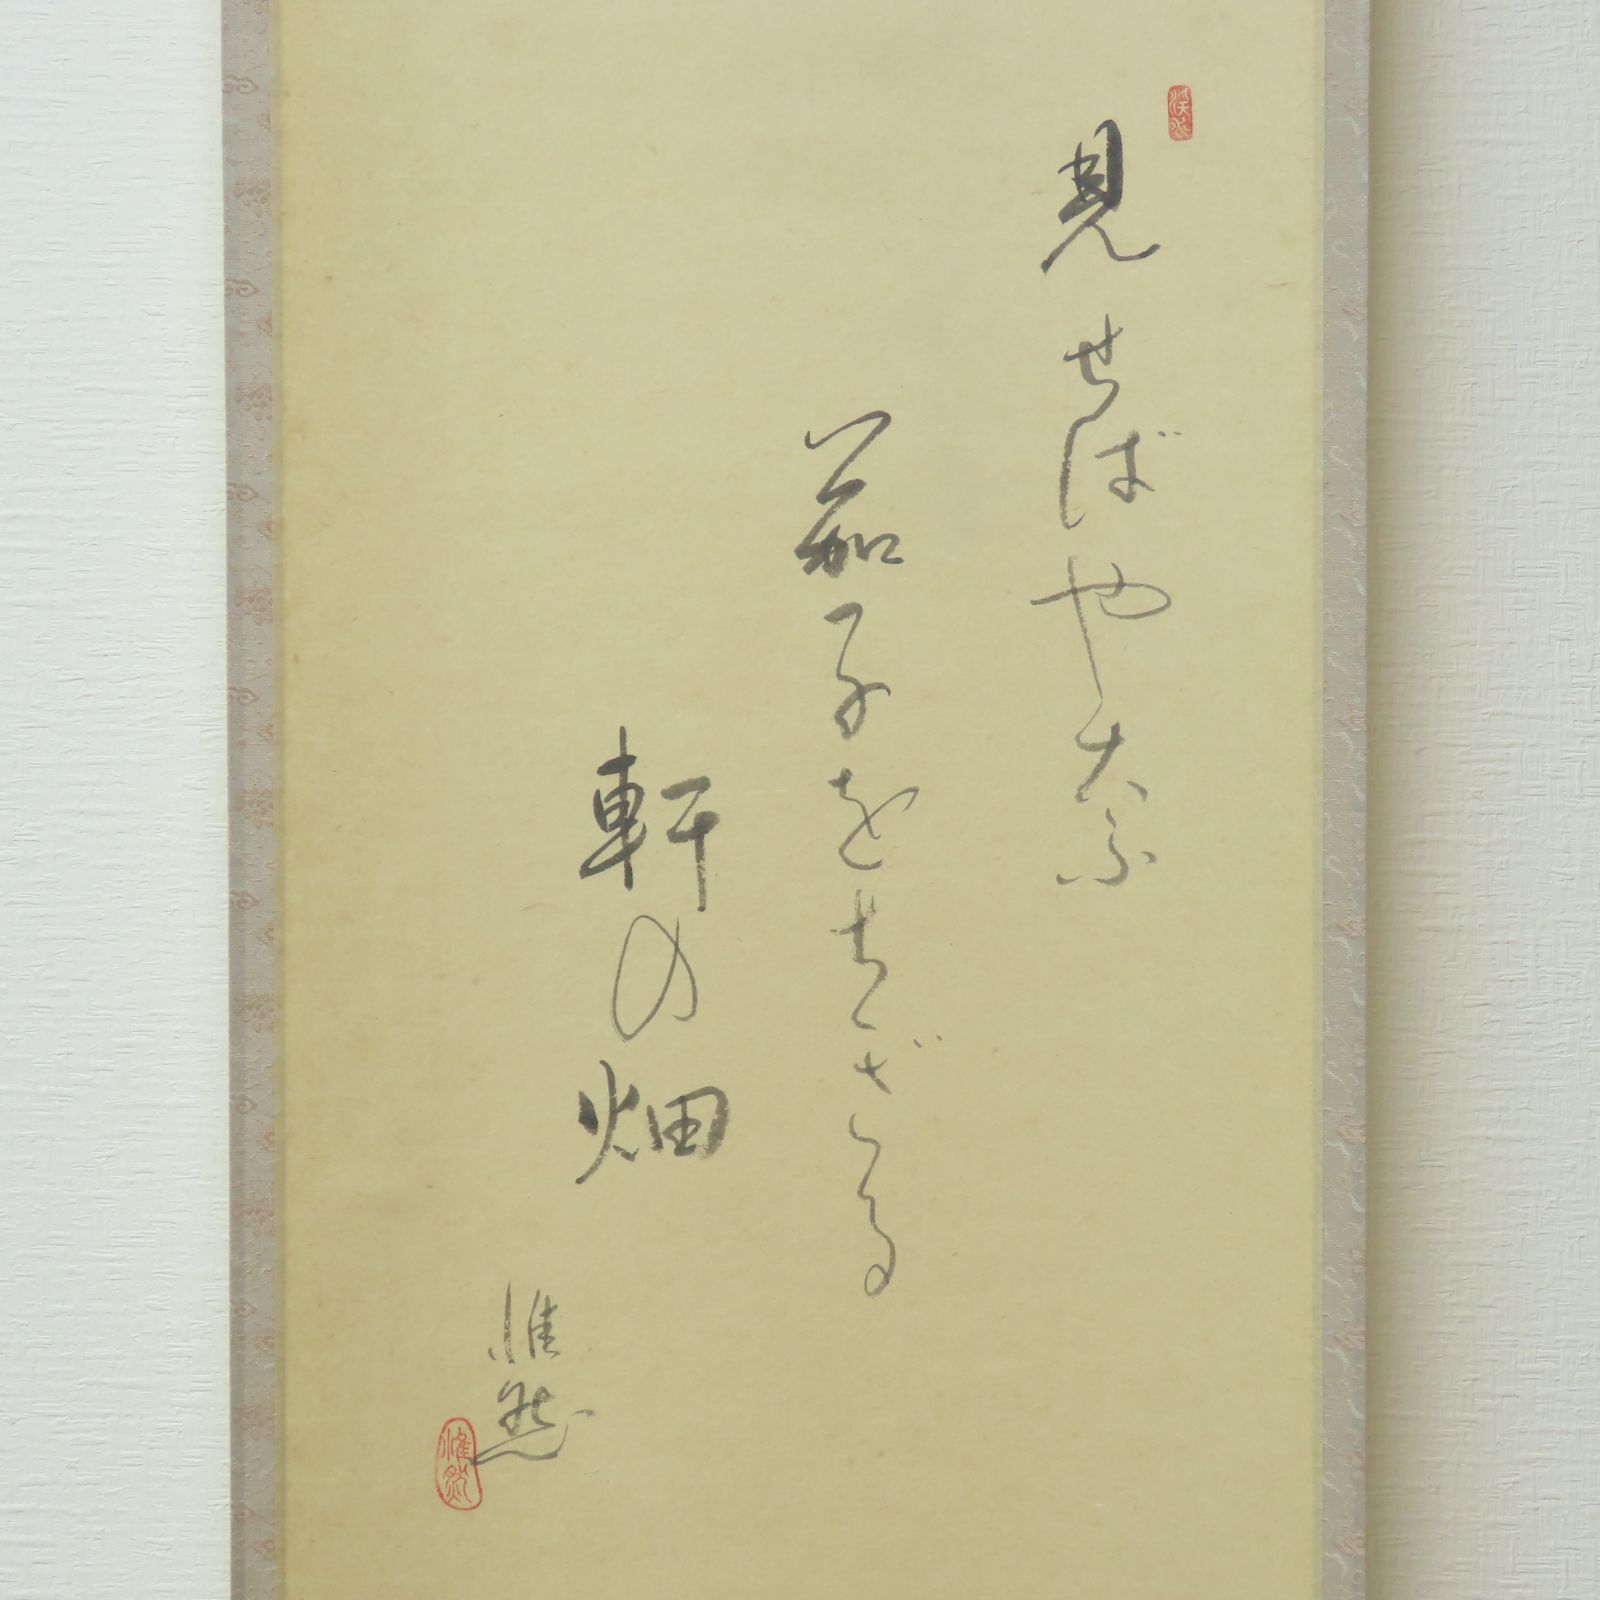 見せばや奈
茄子をちぎる
軒の畑
惟然
惟然